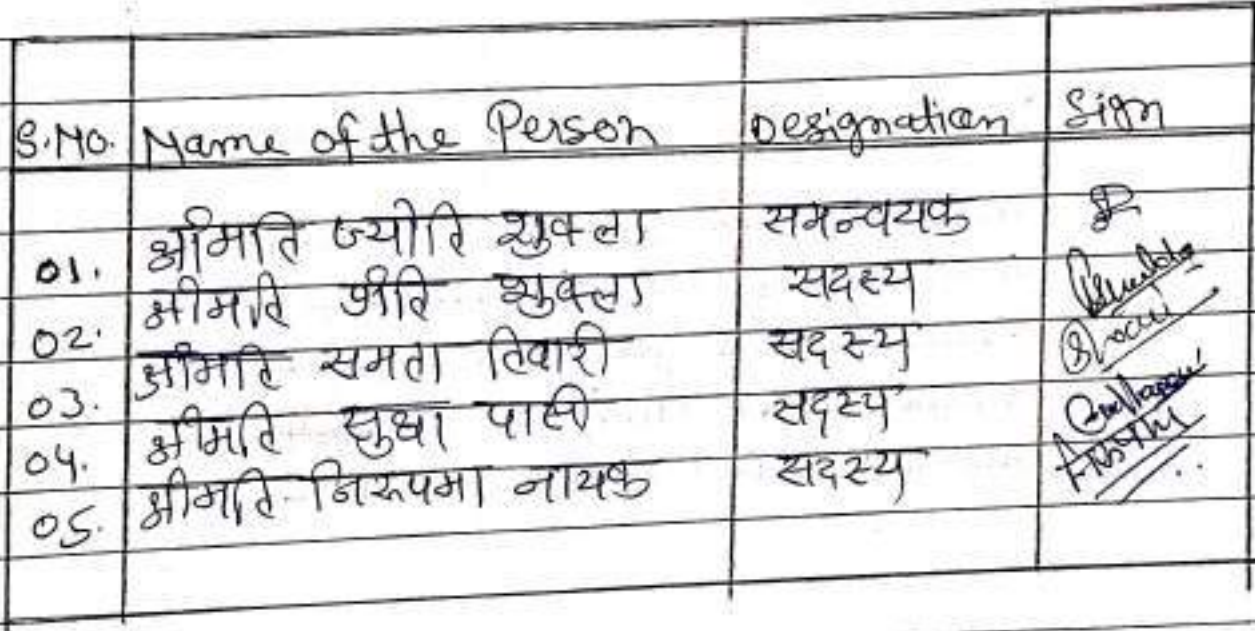 S.No. Name of the Person Designation Sign
01. श्रीमति ज्योति शुक्ला समन्वयक
02. श्रीमति प्रीति शुक्ला सदस्य
03. श्रीमति समता तिवारी सदस्य
04. श्रीमति सुधा पासी सदस्य
05. श्रीमति निरूपमा नायक सदस्य